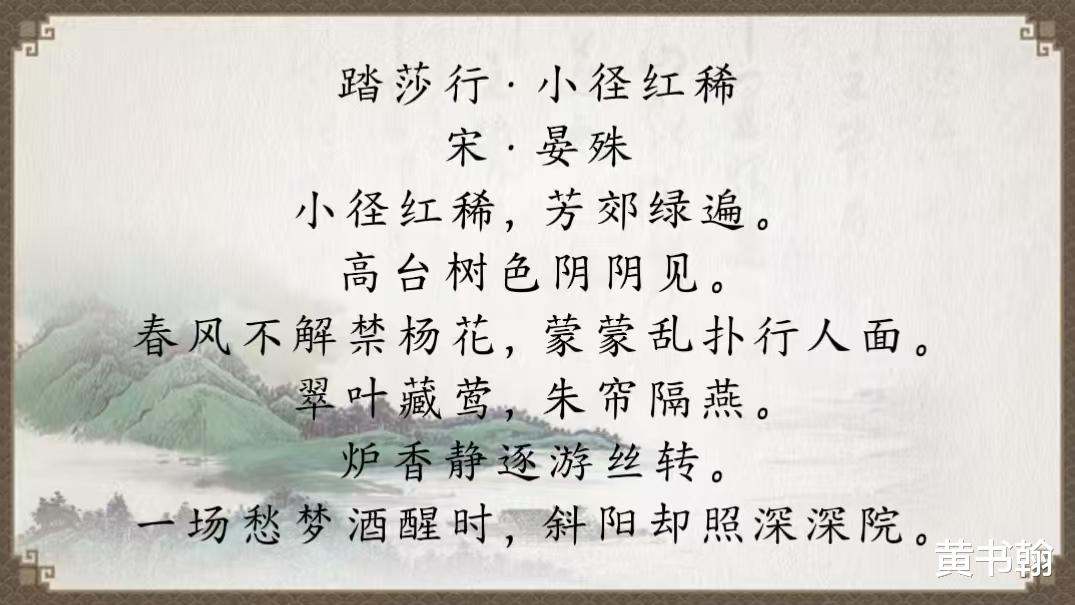 踏莎行·小径红稀
宋·晏殊
小径红稀，芳郊绿遍。
高台树色阴阴见。
春风不解禁杨花，蒙蒙乱扑行人面。
翠叶藏莺，朱帘隔燕。
炉香静逐游丝转。
一场愁梦酒醒时，斜阳却照深深院。
黄书翰